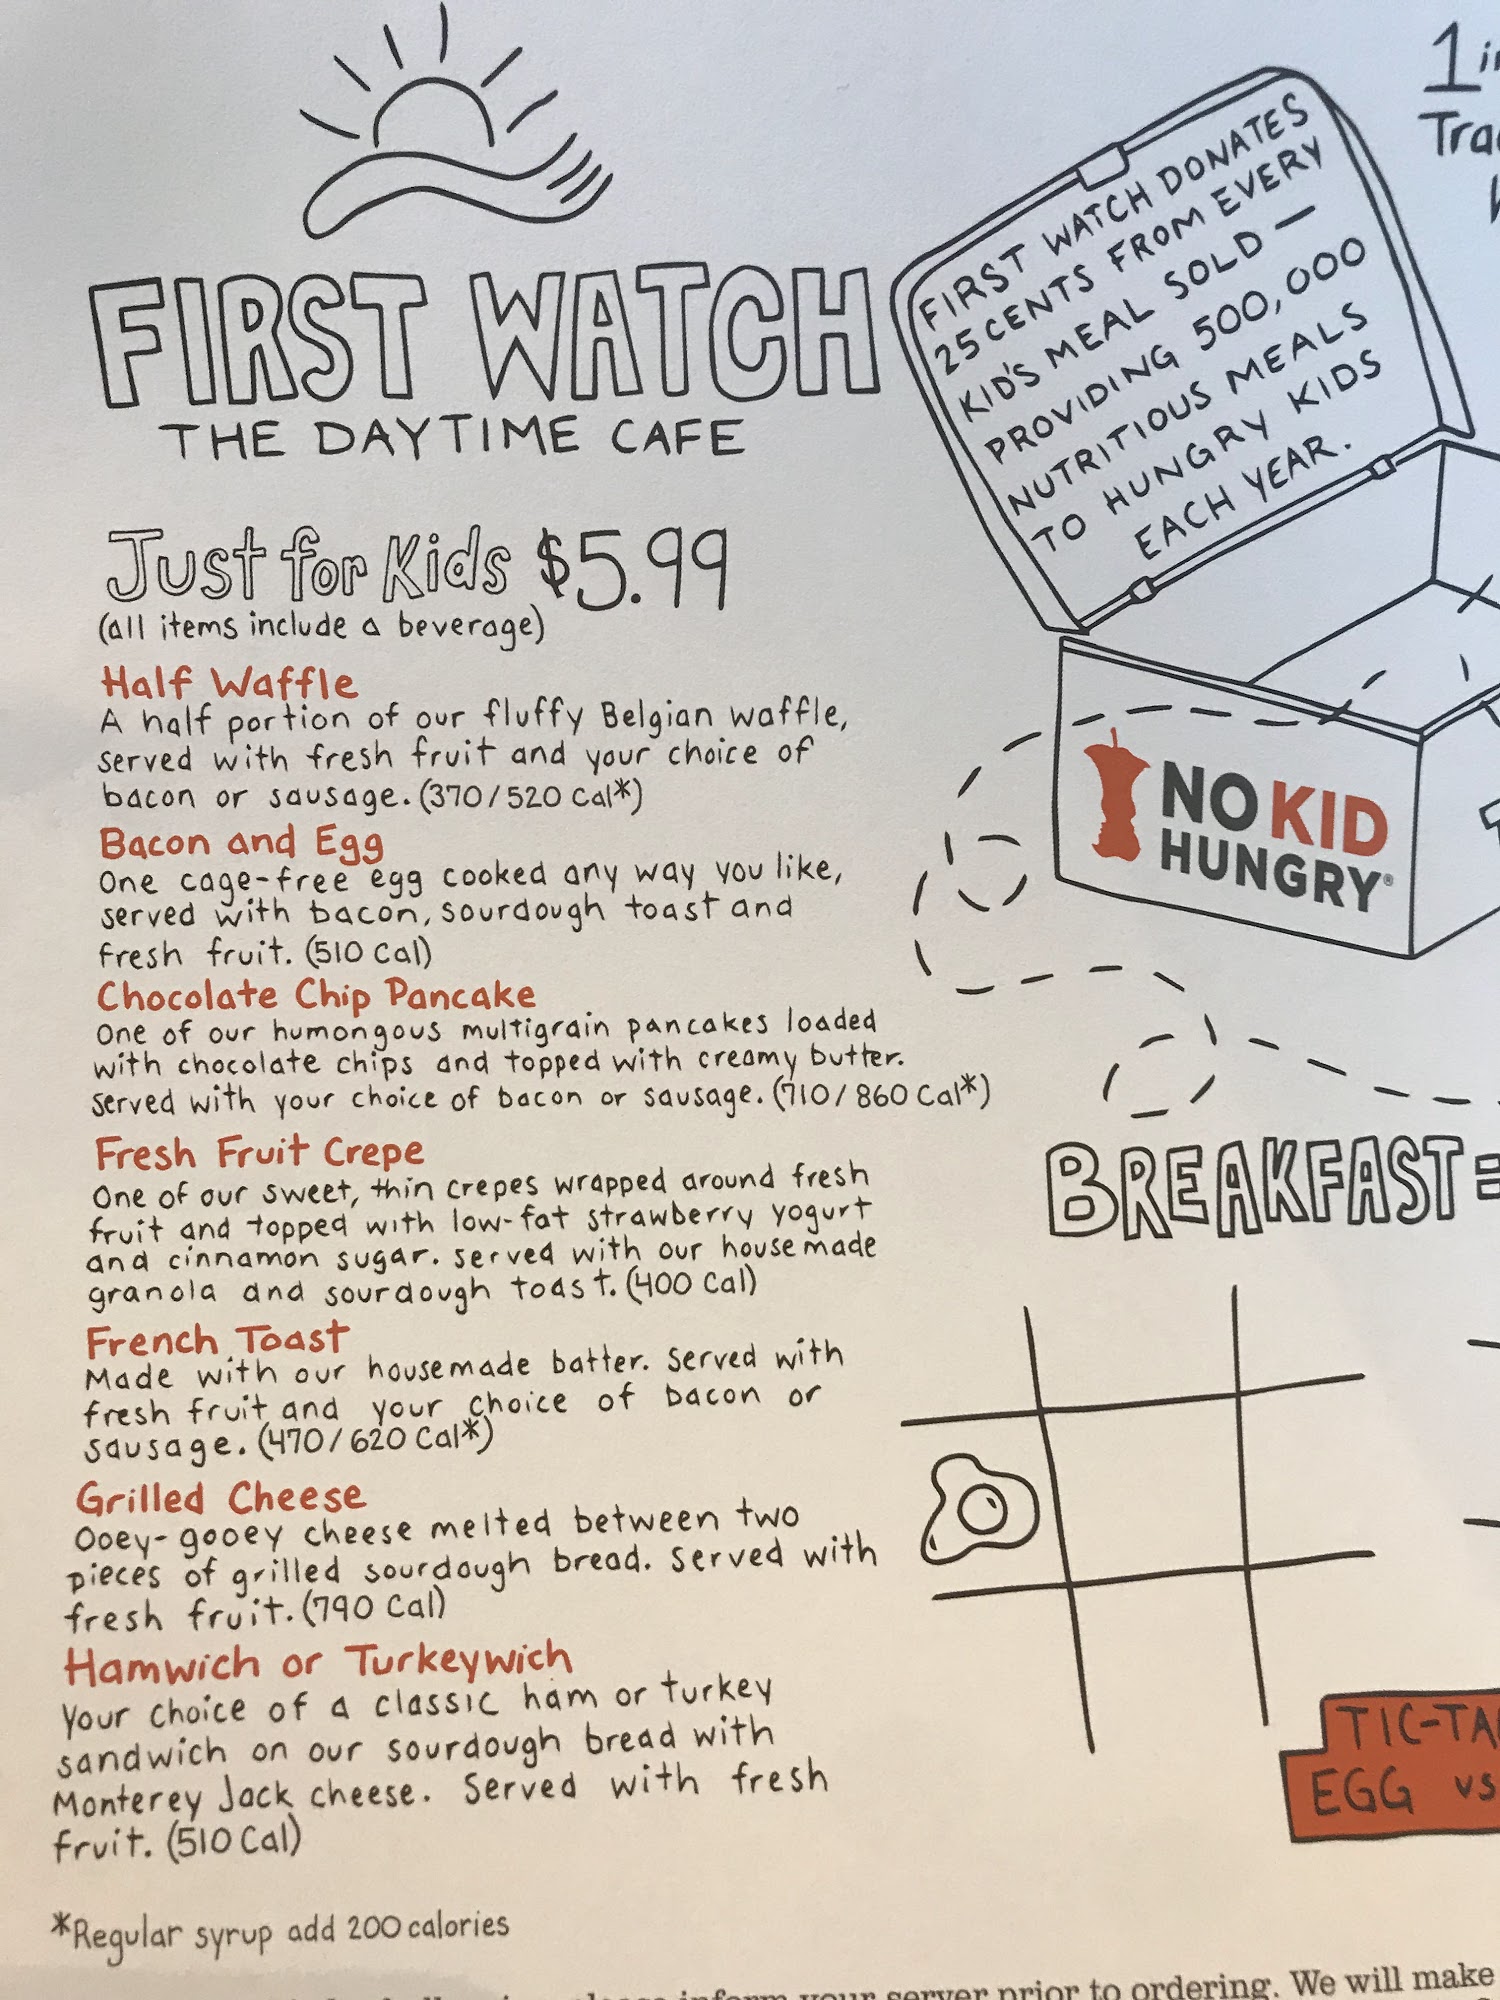 FIRST WATCH
THE DAYTIME CAFE
Just for Kids $5.99
(all items include a beverage)
Half Waffle
A half portion of our fluffy Belgian waffle,
served with fresh fruit and your choice of
bacon or sausage. (370/520 Cal*)
Bacon and Egg
One cage-free egg cooked any way you like,
served with bacon, sourdough toast and
fresh fruit. (510 Cal)
Chocolate Chip Pancake
One of our humongous multigrain pancakes loaded
with chocolate chips and topped with creamy butter.
Served with your choice of bacon or sausage. (710/860 Cal*)
Fresh Fruit Crepe
One of our sweet, thin crepes wrapped around fresh
fruit and topped with low-fat strawberry yogurt
and cinnamon sugar. Served with our housemade
granola and sourdough toast. (400 Cal)
French Toast
Made with our housemade batter. Served with
fresh fruit and your choice of bacon or
sausage. (470/620 Cal*)
Grilled Cheese
Ooey-gooey cheese melted between two
pieces of grilled sourdough bread. Served with
fresh fruit. (790 Cal)
Hamwich or Turkeywich
Your choice of a classic ham or turkey
sandwich on our sourdough bread with
Monterey Jack cheese. Served with fresh
fruit. (510 Cal)
*Regular syrup add 200 calories
FIRST WATCH DONATES
25 CENTS FROM EVERY
KID'S MEAL SOLD —
PROVIDING 500,000
NUTRITIOUS MEALS
TO HUNGRY KIDS
EACH YEAR.
1
NO KID
HUNGRY®
BREAKFAST =
TIC-TA
EGG vs
please inform your server prior to ordering. We will make